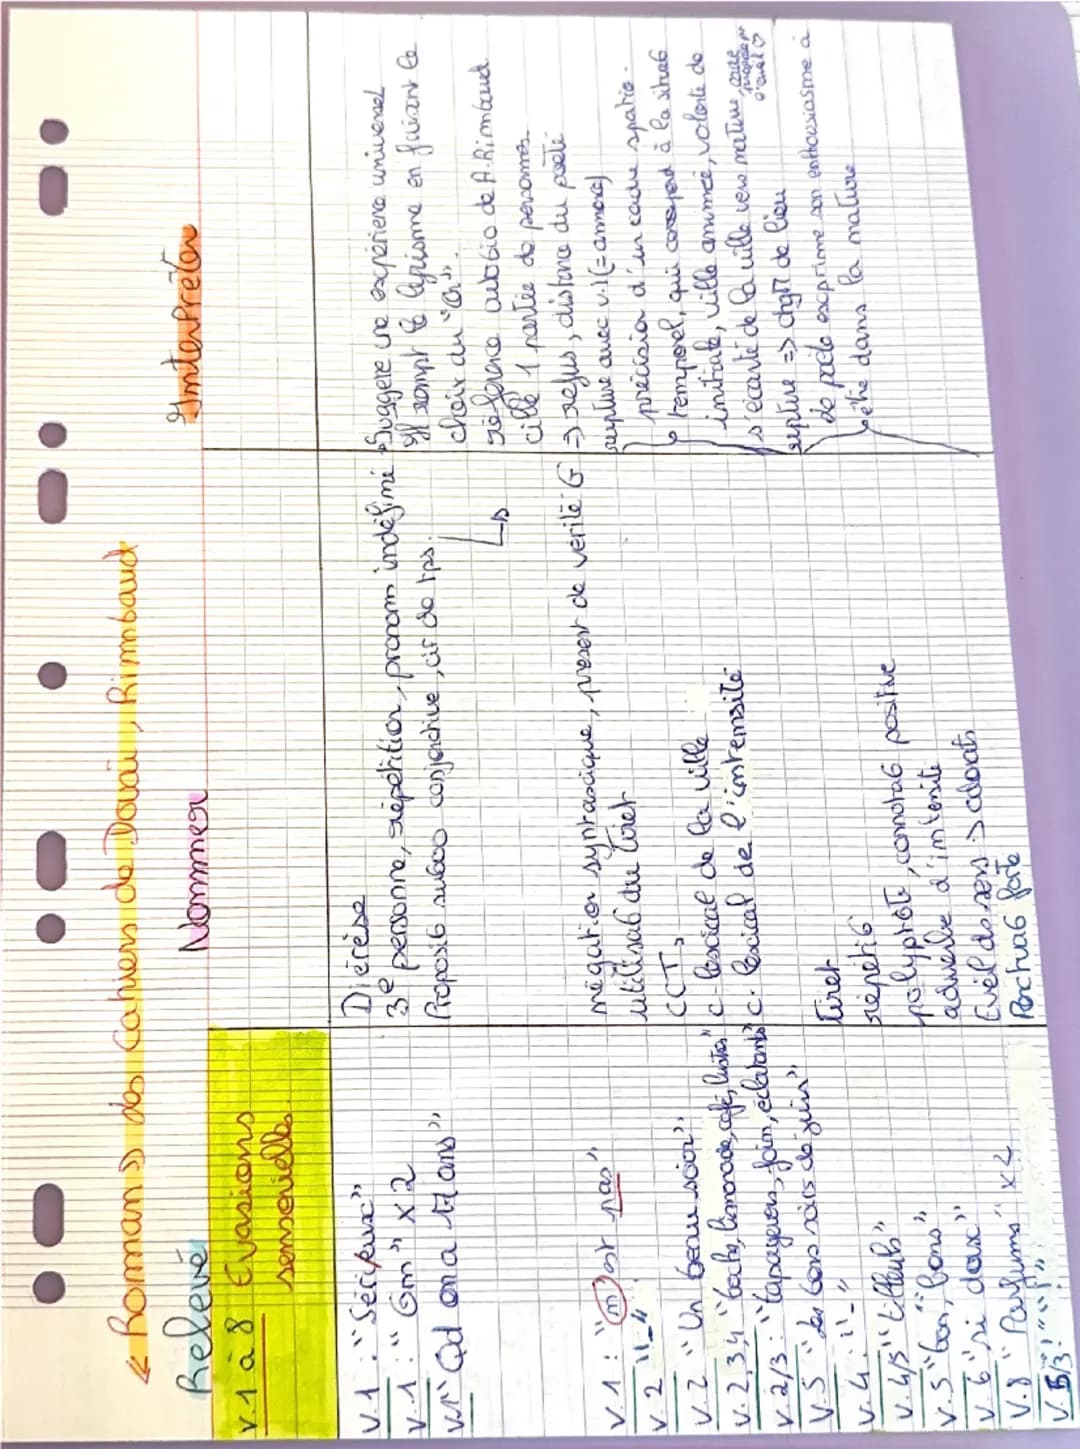 « Roman » des Cahiers de Douai, Rimbaud
Relevé
Nommer
Interpréter
V.1 à 8 Evasions
sensorielle
V.1 : "Sérieux"
V.1 : "On" x2
V.1 "Qd on a 17 ans"
V.1 : "n'est pas"
V.2 "-"
V.2 "Un beau soir"
V.2,3,4 "bocks, limonade, café, lustres"
V.2/3 : "tapageurs, foin, éclatants"
V.5 "les bons soirs de juin"
V.4 : "-"
V.4/5 "tilleuls"
V.5 "bon", "bons"
V.6 "si doux"
V.8 "Parfums" x2
V.5/3 "!" "!"
Diérèse
3e personne, répétition, pronom indéfini
Proposit° subco conjonctive, cir de tps.
négation syntaxique, present de vérité G
utilisat° du tiret
CCT,
c. lexical de la ville
c. lexical de l'intensité
tiret
répétit°
polyptote, connotat° positive
adverbe d'intensité
éveil des sens -> odorats
Ponctuat° forte
Suggere une expérience universel
Il rompt le lyrisme en faisant le
choix du "On".
référence autobio de A. Rimbaud
cible 1 partie de personnes
=> refus, distance du poète
rupture avec v.1 (= annoce)
précision d'un cadre spatio-
temporel, qui correspond à la situat°
initiale, ville animée, volonté de
s'écarté de la ville vers nature
rupture => chgt de lieu
le poète exprime son enthousiasme à
être dans la nature